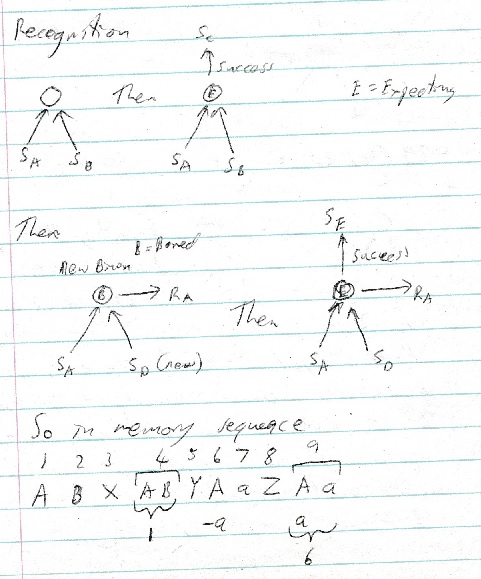 Recognition
S_C
↑ Success
Then E E = Expecting
S_A S_B S_A S_B
Then S_E
B = Bored
Success
New
B → R_A → R_A
Then
S_A S_D (new) S_A S_D
So in memory sequence
1 2 3 4 5 6 7 8 9
A B X A B Y A a Z A a
1 -a a
6